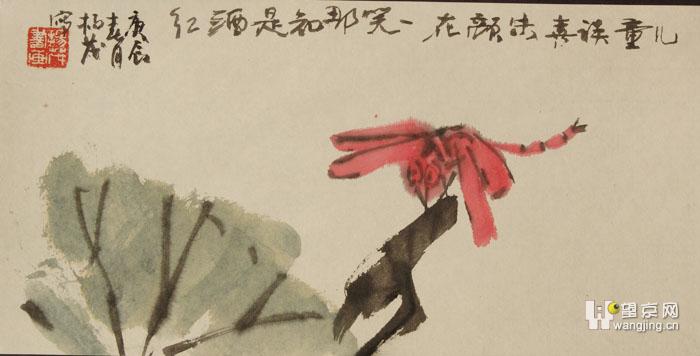 儿童误喜朱颜在一笑那知是酒红
庚辰
春月
杨茂
写
望京网
wangjing.cn